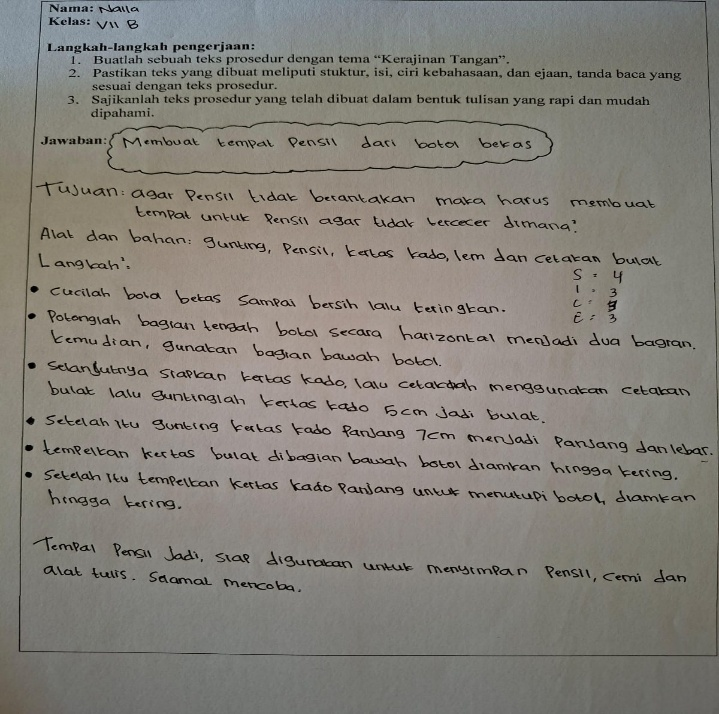 Nama: Naila
Kelas: VII B
Langkah-langkah pengerjaan:
1. Buatlah sebuah teks prosedur dengan tema “Kerajinan Tangan”.
2. Pastikan teks yang dibuat meliputi stuktur, isi, ciri kebahasaan, dan ejaan, tanda baca yang
sesuai dengan teks prosedur.
3. Sajikanlah teks prosedur yang telah dibuat dalam bentuk tulisan yang rapi dan mudah
dipahami.
Jawaban: Membuat tempat Pensil dari botol bekas
Tujuan: agar Pensil tidak berantakan maka harus membuat
tempat untuk Pensil agar tidak tercecer dimana²
Alat dan bahan: gunting, Pensil, kertas kado, lem dan cetakan bulat
Langkah²:
S = 4
I = 3
C =
E = 3
• Cucilah botol bekas sampai bersih lalu keringkan.
• Potonglah bagian tengah botol secara harizontal menjadi dua bagian.
kemudian, gunakan bagian bawah botol.
• Selanjutnya siapkan kertas kado, lalu cetaklah menggunakan cetakan
bulat lalu guntinglah kertas kado 5cm jadi bulat.
• Setelah itu gunting kertas kado Panjang 7cm menjadi Panjang dan lebar.
• tempelkan kertas bulat dibagian bawah botol diamkan hingga kering.
• Setelah itu tempelkan kertas kado Panjang untuk menutupi botol, diamkan
hingga kering.
Tempat Pensil Jadi, siap digunakan untuk menyimpan Pensil, cerni dan
alat tulis. Selamat mencoba.